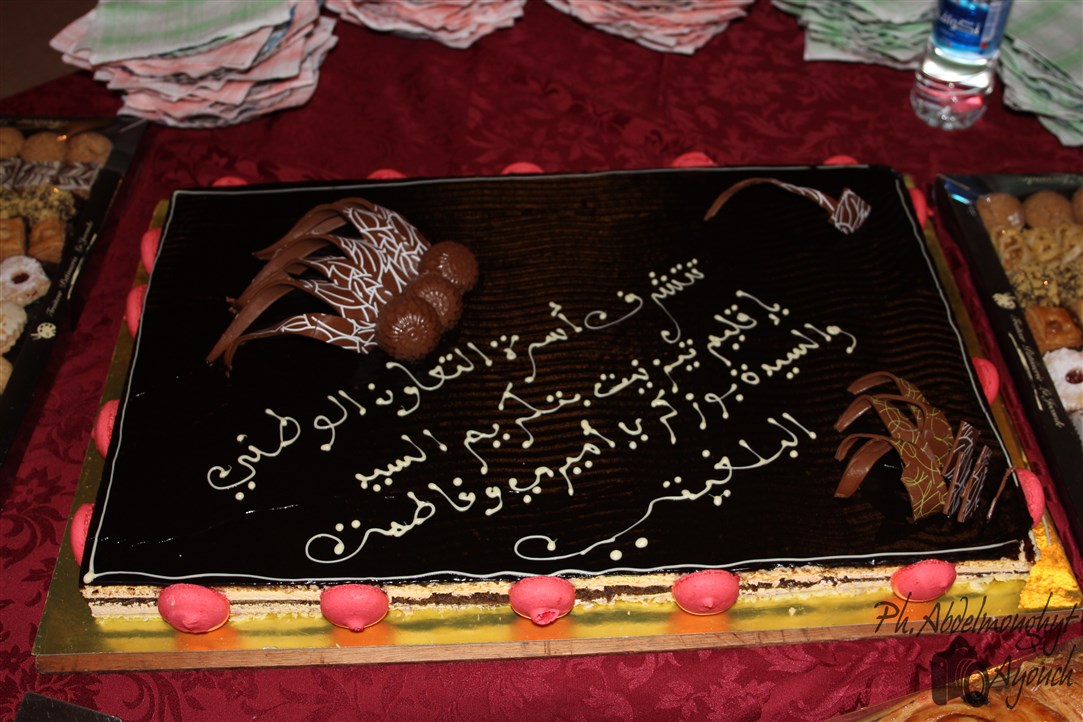 تتشرف أسرة التعاون الوطني
بإقليم تيزنيت بتكريم السيد
والسيدة بوزكري اميري وفاطمة
البلغيتي
Ph. Abdelmonghyt
Ayouch